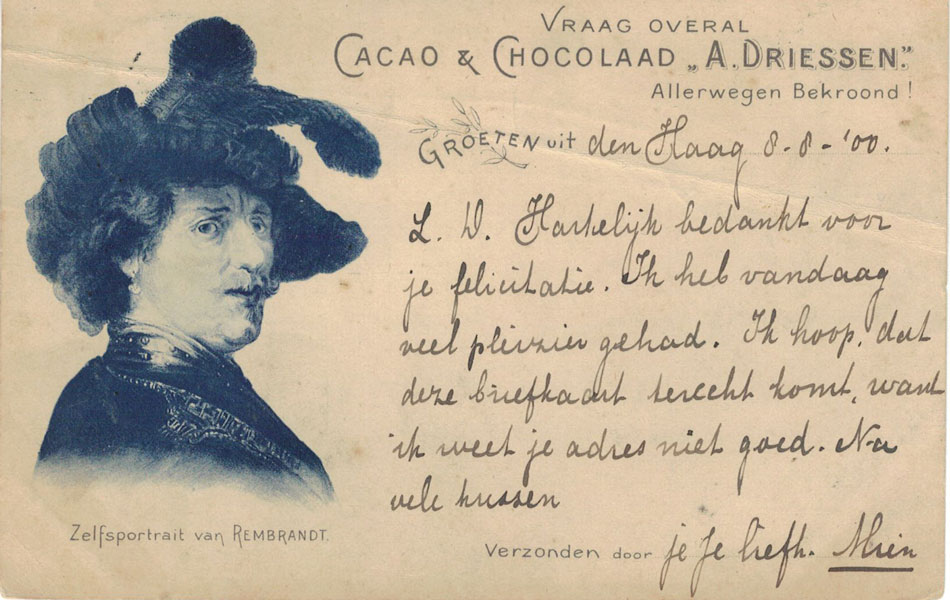 VRAAG OVERAL
CACAO & CHOCOLAAD „A. DRIESSEN."
Allerwegen Bekroond!
GROETEN uit den Haag 8-8-'00.
L. W. Hartelijk bedankt voor
je felicitatie. Ik heb vandaag
veel plezier gehad. Ik hoop, dat
deze briefkaart terecht komt, want
ik weet je adres niet goed. Na
vele kussen
Zelfsportrait van REMBRANDT.
Verzonden door je je liefh. Mien